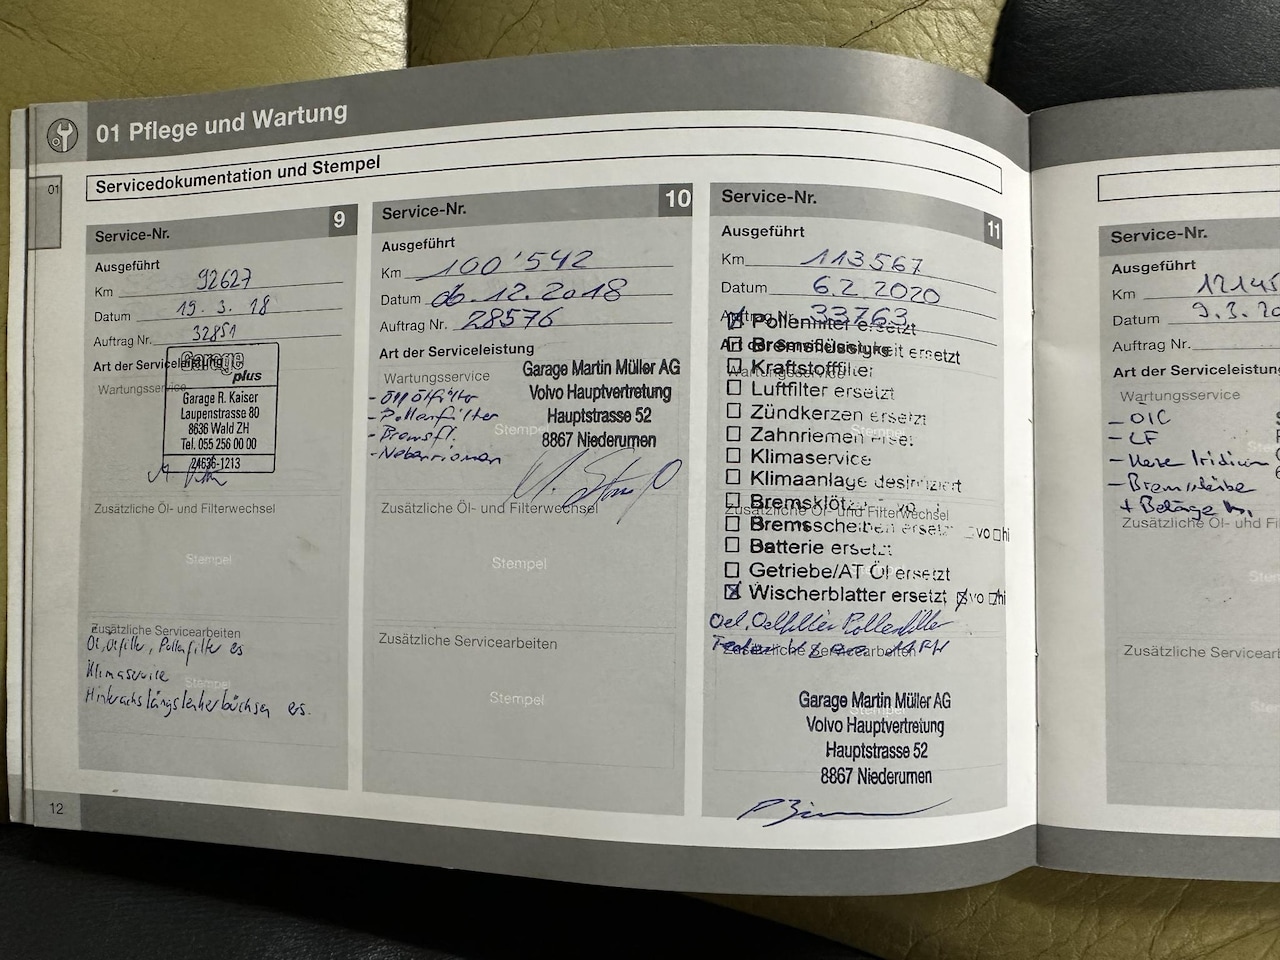 01 Pflege und Wartung
01
Servicedokumentation und Stempel
Service-Nr. 9
Ausgeführt
Km 92627
Datum 19.3.18
Auftrag Nr. 32851
Art der Serviceleistung
Wartungsservice
Garage
plus
Garage R. Kaiser
Laupenstrasse 80
8636 Wald ZH
Tel. 055 256 00 00
24636-1213
Zusätzliche Öl- und Filterwechsel
Stempel
Zusätzliche Servicearbeiten
Öl, Ölfilter, Pollenfilter es
Klimaservice
Stempel
Hinterachslängslenkerbüchsen ers.
12
Service-Nr. 10
Ausgeführt
Km 100'542
Datum 06.12.2018
Auftrag Nr. 28576
Art der Serviceleistung
Wartungsservice
- Öl/Ölfilter
- Pollenfilter
- Bremsfl.
- Nebenriemen
Stempel
Garage Martin Müller AG
Volvo Hauptvertretung
Hauptstrasse 52
8867 Niederurnen
Zusätzliche Öl- und Filterwechsel
Stempel
Zusätzliche Servicearbeiten
Stempel
Service-Nr. 11
Ausgeführt
Km 113567
Datum 6.2.2020
Auftrag Nr. 33763
Art der Serviceleistung
Wartungsservice
Pollenfilter ersetzt
Bremsflüssigkeit ersetzt
Kraftstofffilter
Luftfilter ersetzt
Zündkerzen ersetzt
Zahnriemen erset
Klimaservice
Klimaanlage desinfiziert
Bremsklötze vo
Zusätzliche Öl- und Filterwechsel
Bremsscheiben ersetzt vo hi
Batterie ersetzt
Getriebe/AT Öl ersetzt
Wischerblatter ersetzt vo hi
Oel, Oelfilter Pollenfilter
Zusätzliche Servicearbeiten
Stempel
Garage Martin Müller AG
Volvo Hauptvertretung
Hauptstrasse 52
8867 Niederurnen
Service-Nr.
Ausgeführt
Km 12145
Datum 9.3.20
Auftrag Nr.
Art der Serviceleistung
Wartungsservice
- ÖIC
- LF
- Kerze Iridium
- Bremsscheibe
+ Beläge
Zusätzliche Öl- und Fi
Ste
Zusätzliche Servicearb
Ste